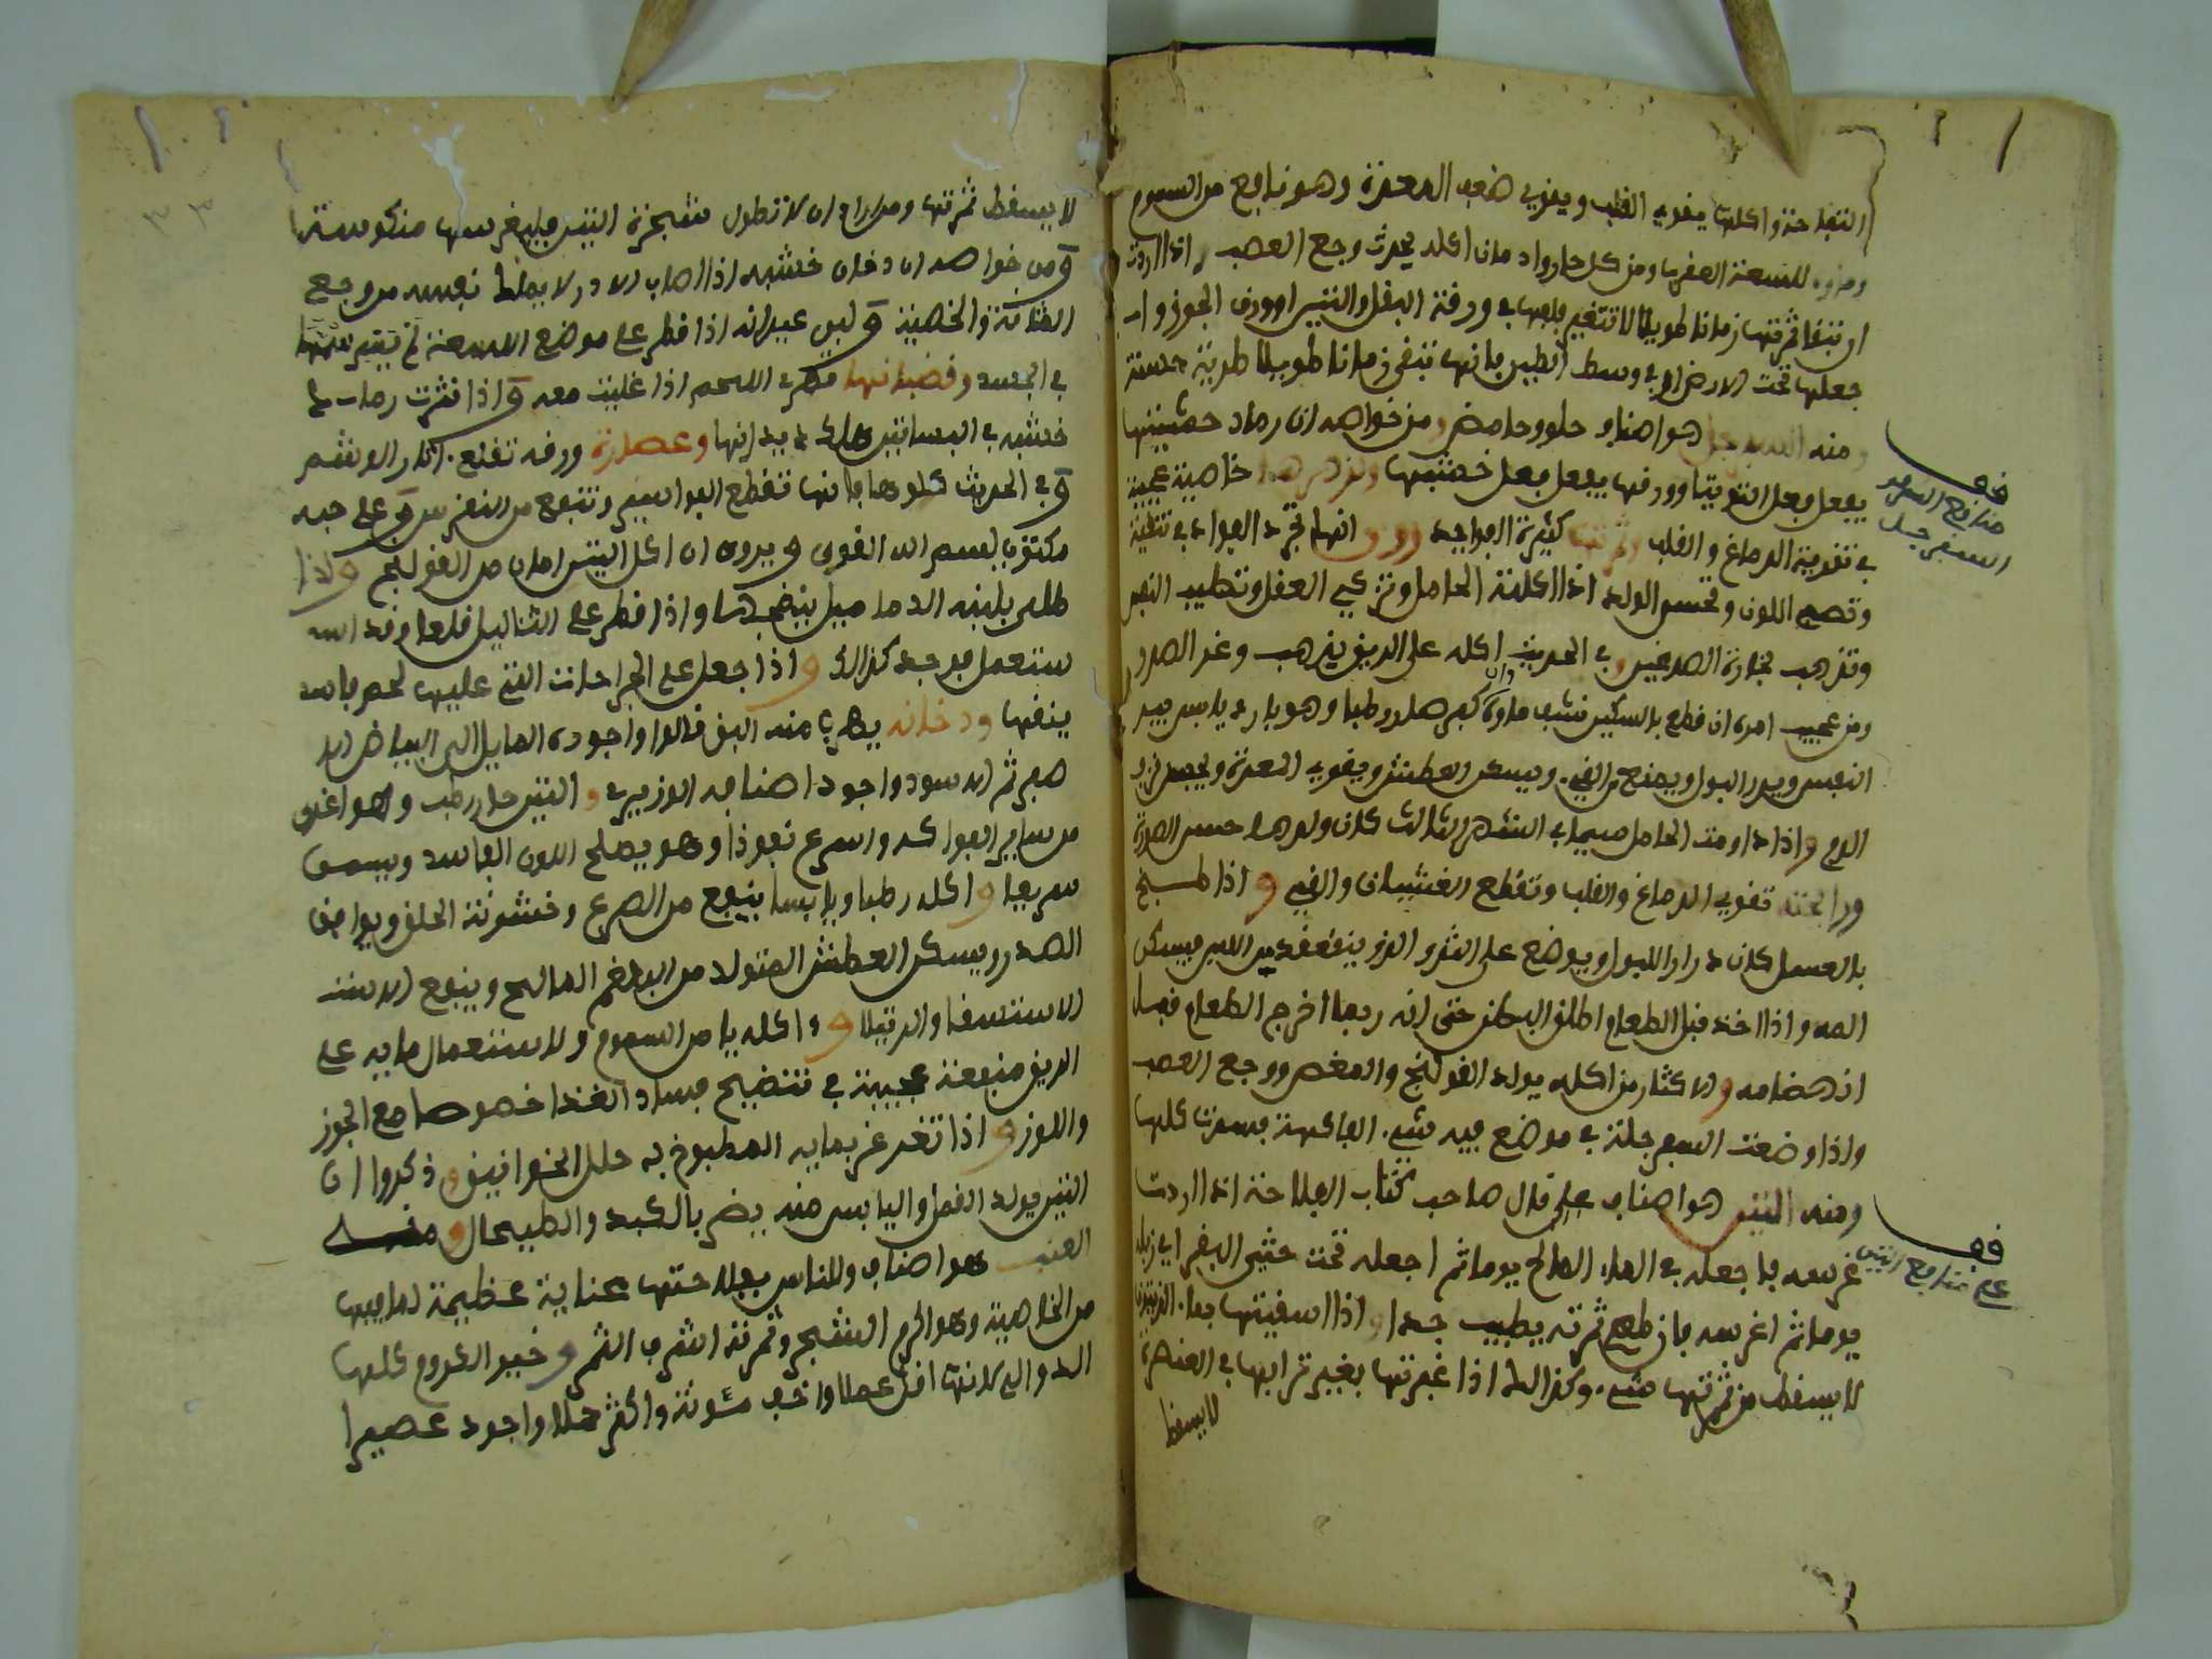 التفاحة واكلها يقوي القلب ويقوي ضعف المعدة وهو نافع من السموم
للسعة العقرب ومن كل حار وادمان اكله يحدث وجع العصب واذا اردت
ان تبقا ثمرتها زمانا طويلا لا تتغير فلفها في ورقة البقل والتين او ورق الجوز وا
جعلها تحت الارض او في وسط الطين فانها تبقى زمانا طويلا طرية حسنة
ومنه السفرجل هو اصناف حلو وحامض ومن خواصه ان رماد خشبتها
يفعل فعل التوتيا وورقها يفعل فعل خشبها ولزهرها خاصية عجيبة
في تقوية الدماغ والقلب وثمرتها كثيرة الفوايد وروي انها تجرد الفواد في تنقية
وتصفي اللون وتحسن الولد اذا اكلته الحامل وتزكي العقل وتطيب النفس
وتذهب بخارة الصدغين وفي الحديث اكله على الريق يذهب وغر الصدر
ومن عجيب امره ان قطع بالسكين نشف ماوه وان كسر صار رطبا وهو بارد يابس يسر
النفس ويدر البول ويمنع من القيء ويسكن العطش ويقوي المعدة ويحبس نزف
الدم واذا داومت الحامل سيما في الشهر الثالث كان ولدها حسن الصورة
ورائحته تقوي الدماغ والقلب وتقطع الغشيان والقيء واذا طبخ
بالعسل كان درارا للبول ويوضع على الثدي الذي ينعقد فيه اللبن فيسكن
المه واذا اخذ قبل الطعام اطلق البطن حتى انه ربما اخرج الطعام قبل
انهضامه والاكثار من اكله يولد القولنج والمغص ووجع العصب
واذا وضعت السفرجلة في موضع فيه شيء الفاكهة فسدت كلها
ومنه التين هو اصناف على قال صاحب كتاب الفلاحة اذا اردت
غرسه فاجعله في الماء المالح يوما ثم اجعله تحت خثى البقر اي زبله
يوما ثم اغرسه فان طعم ثمرته يطيب جدا واذا اسقيتها بماء الزيتون
لا يسقط من ثمرتها شيء وكذالك اذا غيرتها بغير ترابها في العنصرة
لا يسقط
قف
منافع
السفرجل
قف
على منافع التين
لا يسقط ثمرتها ومن اراد ان لا تطول شجرة التين فليغرسها منكوسة
ومن خواصه ان دخان خشبه اذا اصاب الادر لا يملك نفسه من وجع
المثانة والخصية ولبن عيدانه اذا قطر على موضع اللسعة لم يسر سمها
في الجسد وقضبانها تهري اللحم اذا غليت معه واذا نثرت رماد
خشبه في البساتين هلك ديدانها وعصارة ورقه تقلع اثار الوشم
وفي الحديث كلوها فانها تقطع البواسير وتنفع من النقرس و على حبه
مكتوب بسم الله القوي ويروى ان اكل التين امان من القولنج واذا
طلي بلبنه الدماميل ينضجها واذا قطر على الثآليل قلعها وقد
ستعمل فوجد كذالك واذا جعل على الجراحات التي عليها لحم فاسد
ينقيها ودخانه يهرب منه البق قالوا واجوده المايل الى البياض الا
صفر ثم الاسود واجود اصنافه الوزيري والتين حار رطب وهو اغذى
من ساير الفواكه واسرع نفوذا وهو يصلح اللون الفاسد ويسمن
سريعا واكله رطبا ويابسا ينفع من الصرع وخشونة الحلق ويوافق
الصدر ويسكن العطش المتولد من البلغم المالح وينفع الاست
الاستسقا والدبيلا واكله يا من السموم ولاستعمال مايه على
الريق منفعة عجيبة في تنضيج فساد الغذا خصوصا مع الجوز
واللوز واذا تغرغر بمايه المطبوخ به حلل الخوانيق وذكروا ان
التين يولد القمل واليابس منه يضر بالكبد والطحال ومنه
العنب هو اصناف وللناس بفلاحتها عناية عظيمة لما فيها
من الخاصية وهو اكرم الشجر وثمرته اشرف الثمر وخير الكروم كلها
الدوالي لانها اقل عملا واخف مئونة واكثر حملا واجود عصيرا